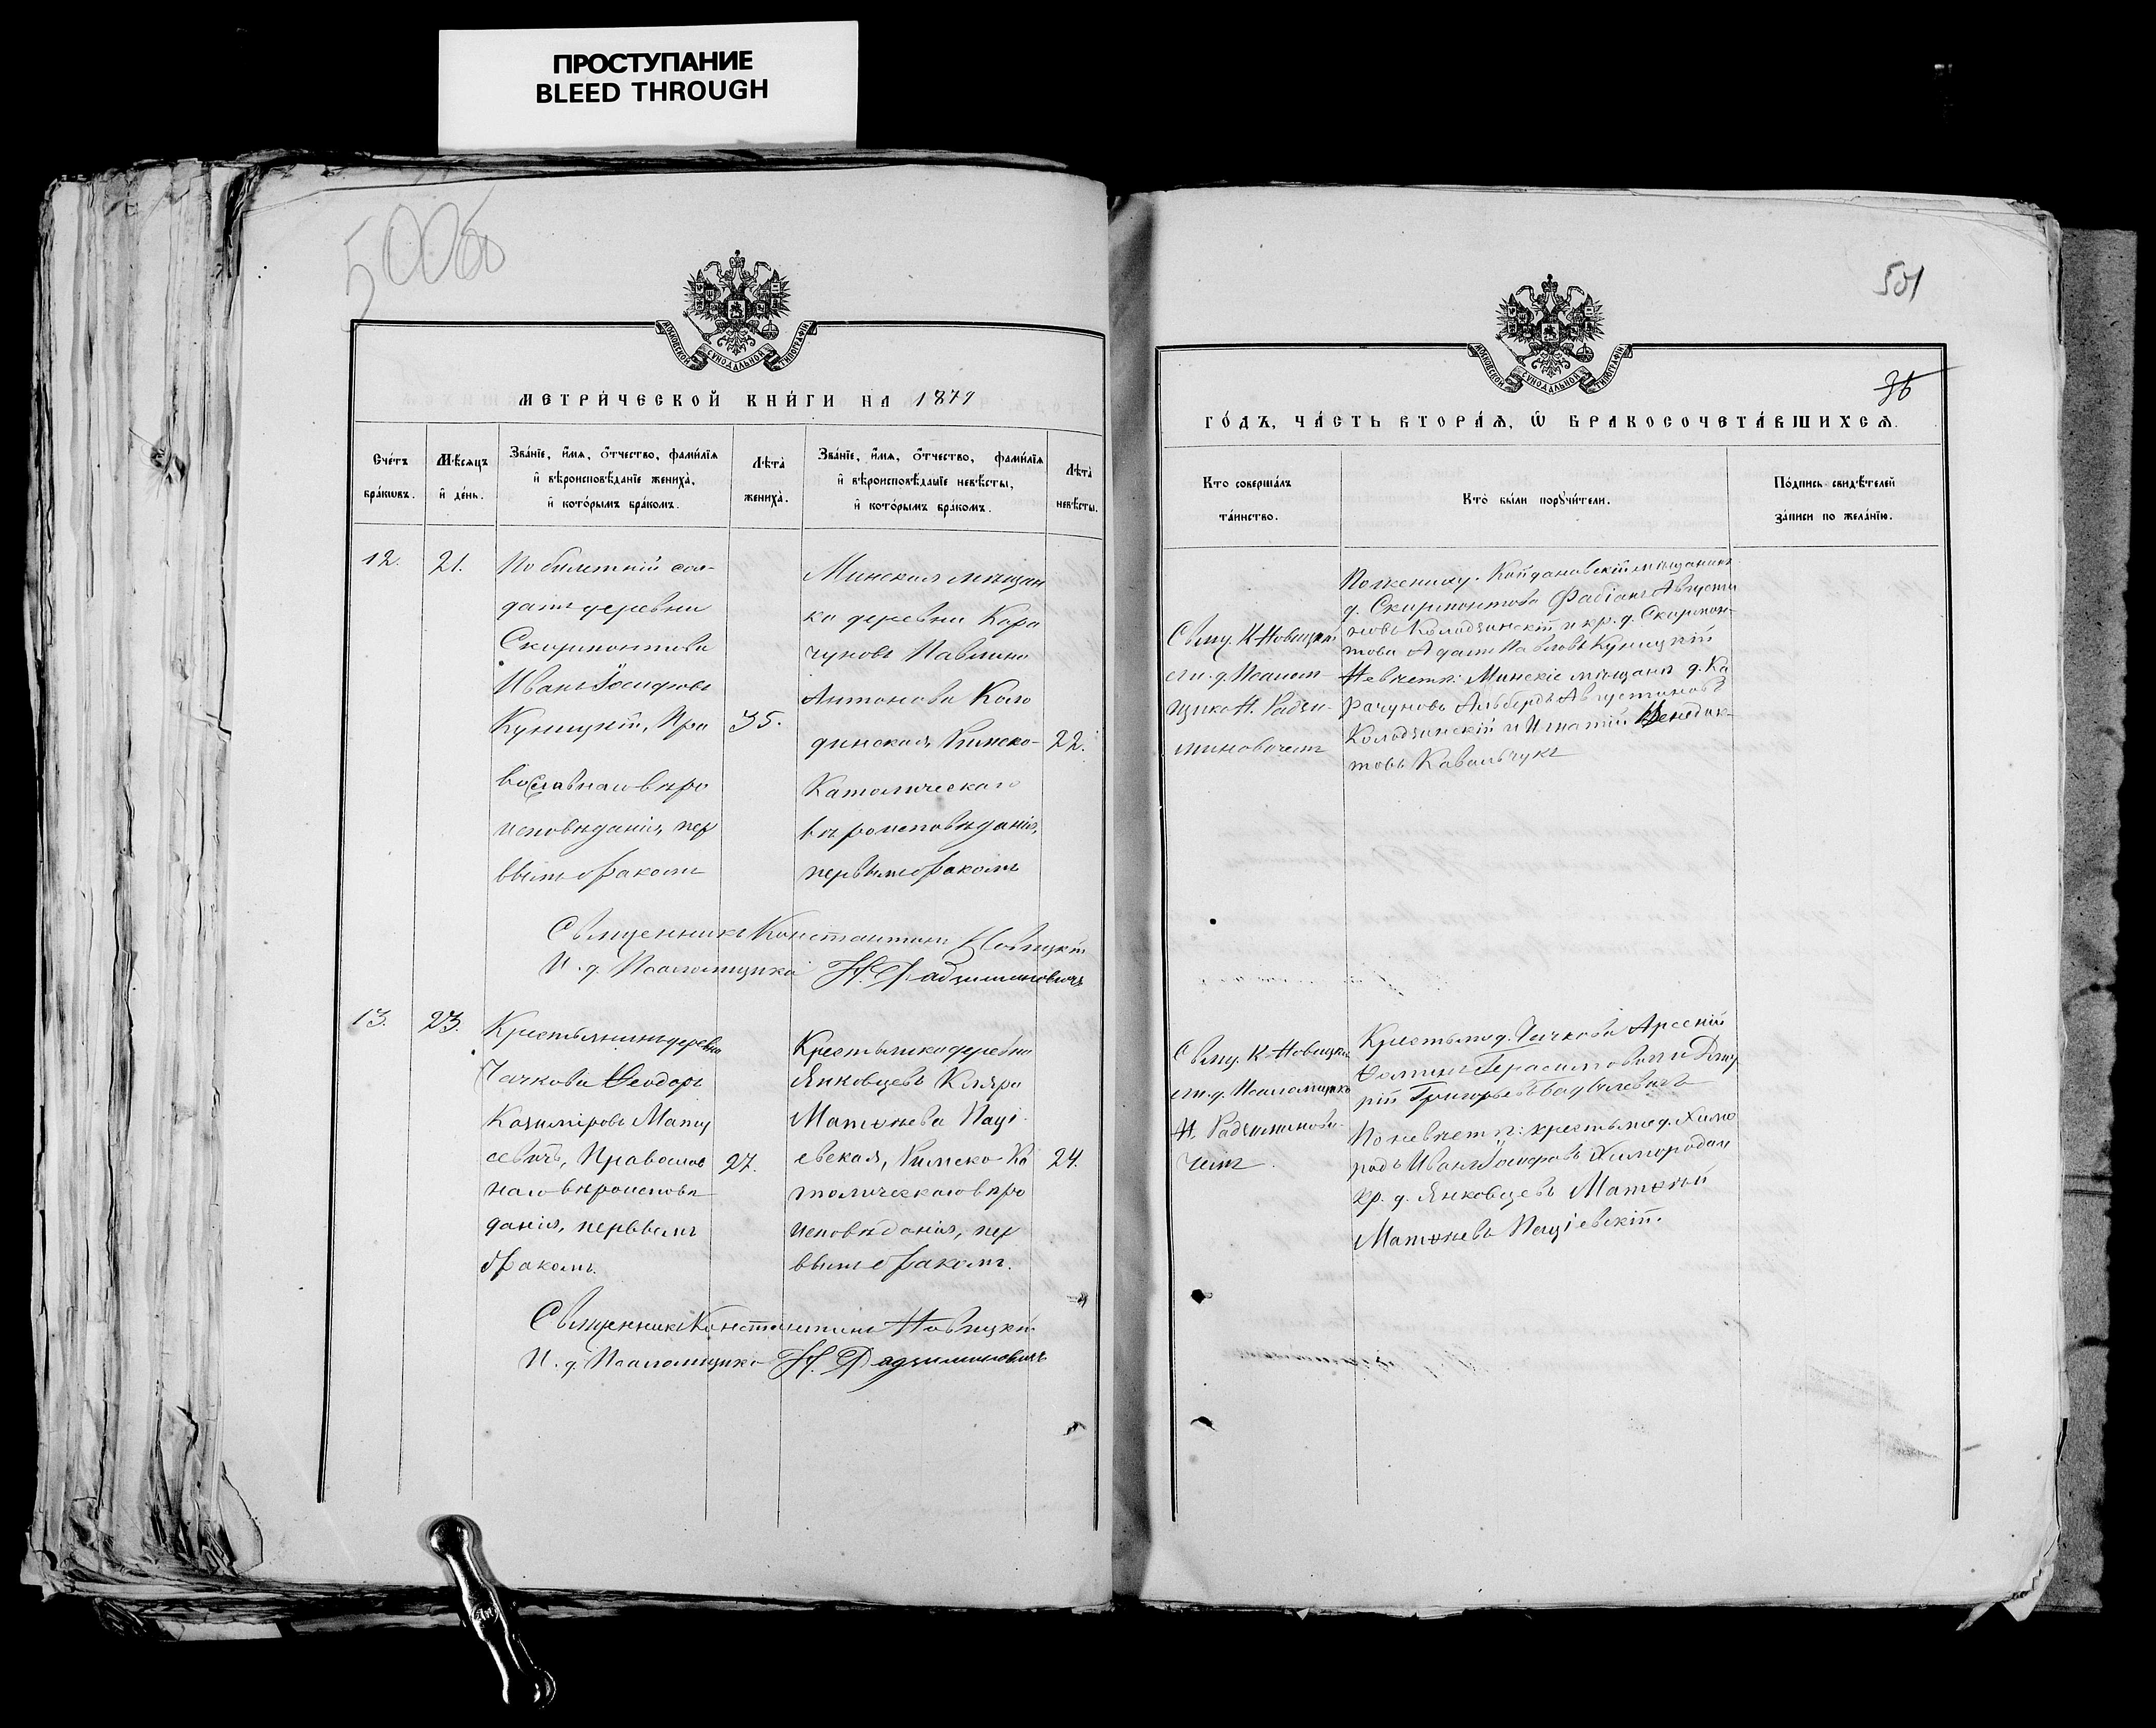 ПРОСТУПАНИЕ
BLEED THROUGH
500об
МОСКОВСКОЙ СѴНОДАЛЬНОЙ ТИПОГРАФІИ
МЕТРИ́ЧЕСКОЙ КНИ́ГИ НА 1879
Сче́тъ
бра́кωвъ.
Мѣсяцъ
и҆ де́нь.
Зва́нїе, и҆́мя, ѻ҆́тчество, фами́лїя
и҆ вѣроисповѣ́данїе жениха̀,
и҆ кото́рымъ бра́комъ.
Лѣта̀
жениха̀.
Зва́нїе, и҆́мя, ѻ҆́тчество, фами́лїя
и҆ вѣроисповѣ́данїе невѣ́сты,
и҆ кото́рымъ бра́комъ.
Лѣта̀
невѣ́сты.
12.
21.
По билетній сол-
датъ деревни
Скирмонтова
Иванъ Іосифовъ
Куницкій, Пра
вославнаго вѣро
исповѣданія, пер
вымъ бракомъ
35.
Минская мѣщан
ка деревни Кара
чуновъ Павлина
Антонова Коло
динская, Римско-
Католическаго
вѣроисповѣданія,
первымъ бракомъ
22.
Священникъ Константинъ Новицкій
И. д. Псаломщика Н. Радзиминовичъ
13.
23.
Крестьянинъ деревни
Чачкова Ѳеодоръ
Казиміровъ Мату
севичъ, Православ
наго вѣроисповѣ
данія, первымъ
бракомъ.
27.
Крестьянка деревни
Янковцевъ Кляра
Матѳеева Паці
евская, Римско-Ка
толическаго вѣро
исповѣданія, пер
вымъ бракомъ.
24.
Священникъ Константинъ Новицкій
И. д. Псаломщика Н. Радзиминовичъ
501
МОСКОВСКОЙ СѴНОДАЛЬНОЙ ТИПОГРАФІИ
36
ГО́ДЪ, ЧА́СТЬ ВТОРА́Ѧ, Ѡ҆ БРАКОСОЧЕТА́ВШИХСѦ.
Кто соверша́лъ
та́инство.
Кто̀ бы́ли порꙋчи́тели.
По́дпись свидѣ́телей
за́писи по жела́нїю.
Свящ. К. Новицкій
съ и. д. Псалом
щика Н. Радзи-
миновичемъ
По жениху: Койдановскій мѣщанинъ
д. Скирмонтова Фабіанъ Августи
новъ Колодзинскій и кр. д. Скирмон-
това Адамъ Павловъ Куницкій
Невѣстѣ: Минскіе мѣщане д. Ка
рачуновъ Альбердъ Августиновъ
Колодзинскій и Игнатій Венедик-
товъ Ковальчукъ
Свящ. К. Новицкій
съ и. д. Псаломщика
Н. Радзиминови-
чемъ.
Крестьяне д. Чачкова Арсеній
Ѳоминъ Герасимовичъ и Дмит
рій Григорьевъ
По невѣстѣ: крестьяне д. Химо
родъ Иванъ Іосифовъ
кр. д. Янковцевъ Матѳей
Матѳеевъ Паціевскій.